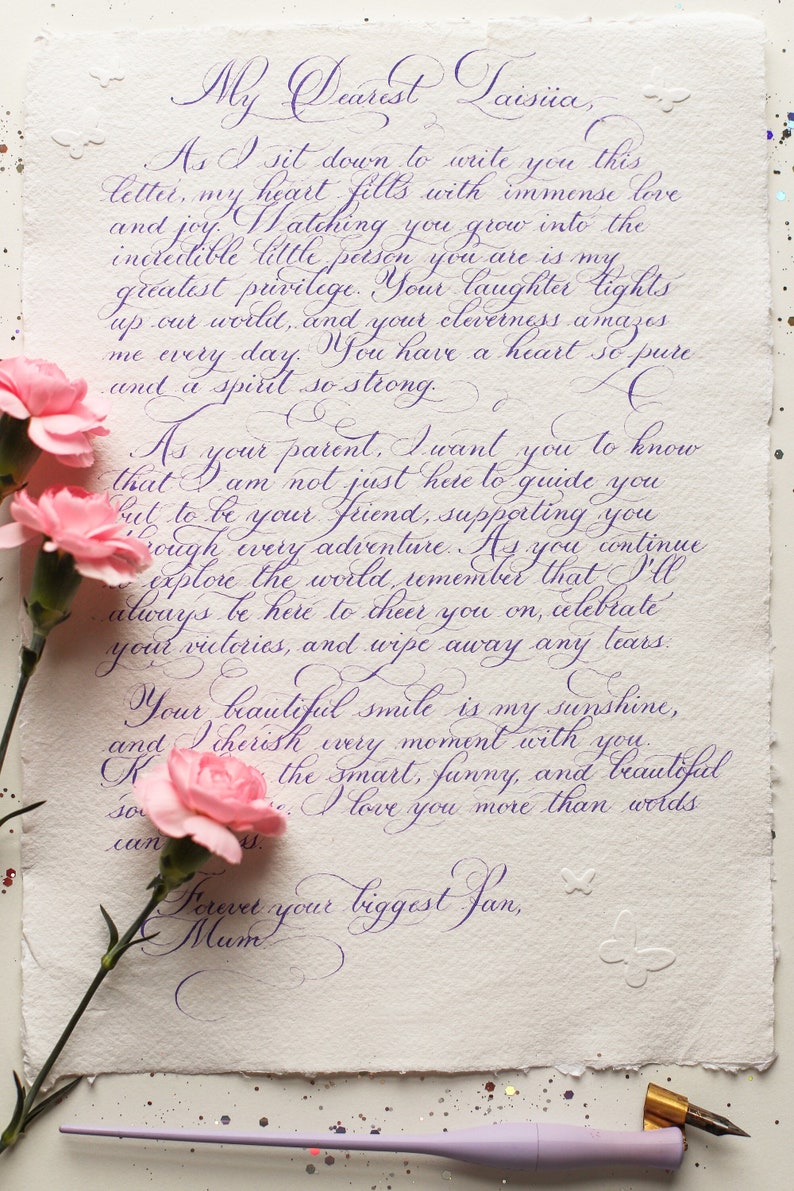 My Dearest Taisiia,
As I sit down to write you this
letter, my heart fills with immense love
and joy. Watching you grow into the
incredible little person you are is my
greatest privilege. Your laughter lights
up our world, and your cleverness amazes
me every day. You have a heart so pure
and a spirit so strong.
As your parent, I want you to know
that I am not just here to guide you
but to be your friend, supporting you
through every adventure. As you continue
to explore the world, remember that I'll
always be here to cheer you on, celebrate
your victories, and wipe away any tears.
Your beautiful smile is my sunshine,
and I cherish every moment with you.
the smart, funny, and beautiful
I love you more than words
can
Forever your biggest fan,
Mum